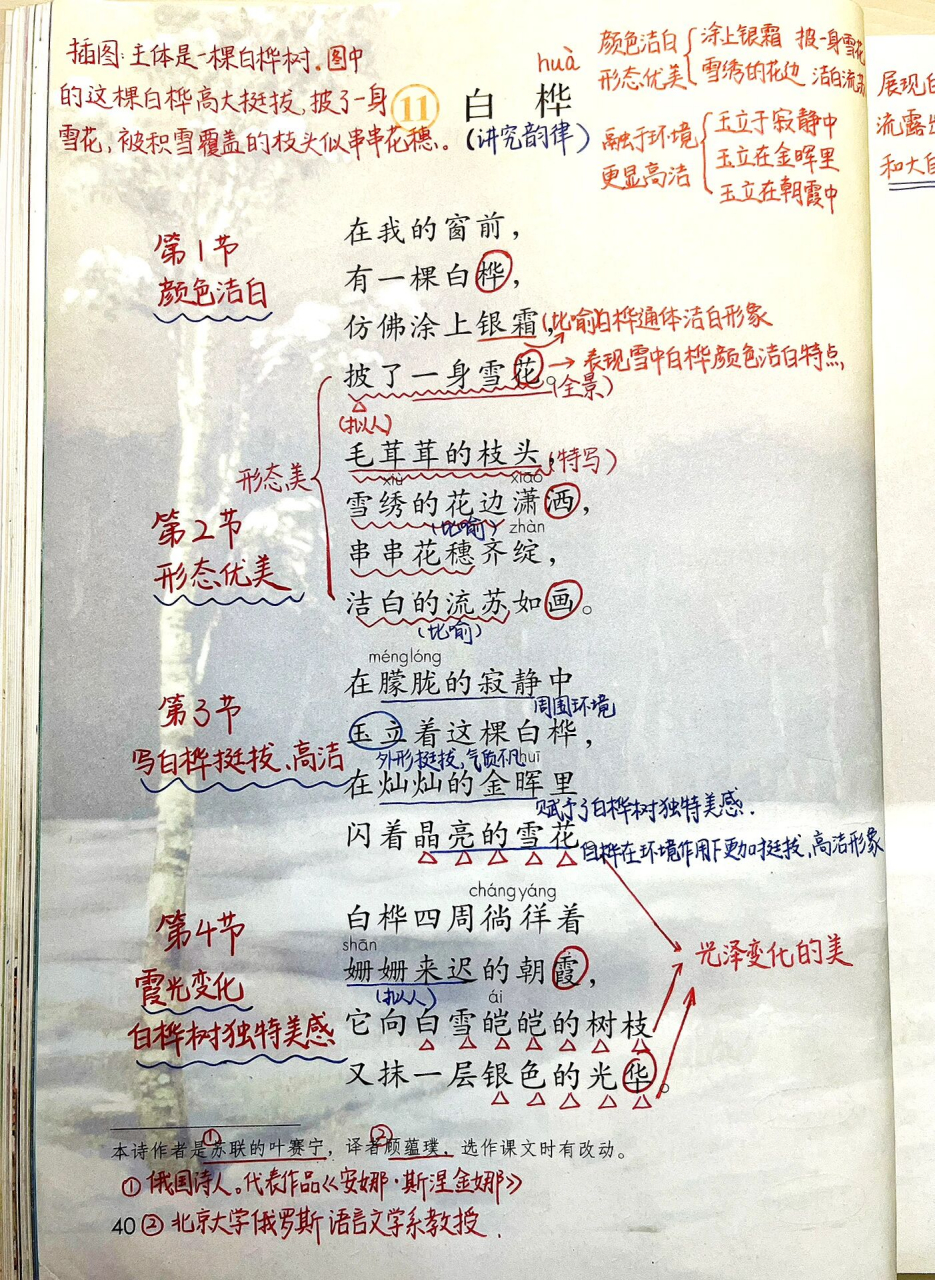 插图:主体是一棵白桦树。图中
的这棵白桦高大挺拔,披了一身
雪花,被积雪覆盖的枝头似串串花穗。
11 白 桦
huà
(讲究韵律)
颜色洁白 涂上银霜 披一身雪花
形态优美 雪绣的花边 洁白流苏
融于环境 玉立于寂静中
更显高洁 玉立在金晖里
玉立在朝霞中
展现白
流露出
和大自
第1节
颜色洁白
在我的窗前,
有一棵白桦,
仿佛涂上银霜,(比喻)白桦通体洁白形象
披了一身雪花。(全景)
→表现雪中白桦颜色洁白特点,
(拟人)
形态美
第2节
形态优美
毛茸茸的枝头,(特写)
xiù xiāo
雪绣的花边潇洒,
(比喻) zhàn
串串花穗齐绽,
洁白的流苏如画。
(比喻)
第3节
写白桦挺拔、高洁
ménglóng
在朦胧的寂静中
周围环境
玉立着这棵白桦,
外形挺拔,气质不凡 huī
在灿灿的金晖里
赋予了白桦树独特美感.
闪着晶亮的雪花
白桦在环境作用下更加挺拔,高洁形象
第4节
霞光变化
白桦树独特美感
chángyáng
白桦四周徜徉着
shān
姗姗来迟的朝霞,
(拟人) ái
它向白雪皑皑的树枝
又抹一层银色的光华。
光泽变化的美
本诗作者是苏联的叶赛宁,译者顾蕴璞,选作课文时有改动。
① ②
①俄国诗人。代表作品《安娜·斯涅金娜》
40 ②北京大学俄罗斯语言文学系教授.